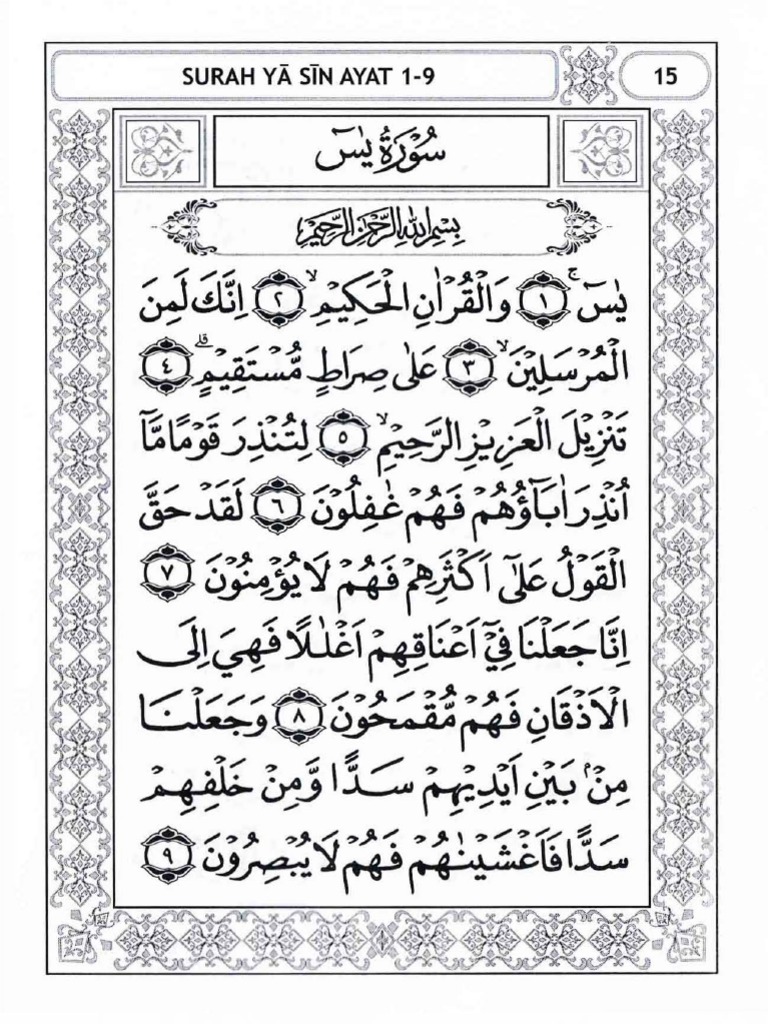 SURAH YĀ SĪN AYAT 1-9
15
سُوْرَةُ يٰسۤ
بِسْمِ اللّٰهِ الرَّحْمٰنِ الرَّحِيْمِ
يٰسۤ ۚ ﴿١﴾ وَالْقُرْاٰنِ الْحَكِيْمِۙ ﴿٢﴾ اِنَّكَ لَمِنَ
الْمُرْسَلِيْنَۙ ﴿٣﴾ عَلٰى صِرَاطٍ مُّسْتَقِيْمٍۗ ﴿٤﴾
تَنْزِيْلَ الْعَزِيْزِ الرَّحِيْمِۙ ﴿٥﴾ لِتُنْذِرَ قَوْمًا مَّآ
اُنْذِرَ اٰبَاۤؤُهُمْ فَهُمْ غٰفِلُوْنَ ﴿٦﴾ لَقَدْ حَقَّ
الْقَوْلُ عَلٰٓى اَكْثَرِهِمْ فَهُمْ لَا يُؤْمِنُوْنَ ﴿٧﴾
اِنَّا جَعَلْنَا فِيْٓ اَعْنَاقِهِمْ اَغْلٰلًا فَهِيَ اِلَى
الْاَذْقَانِ فَهُمْ مُّقْمَحُوْنَ ﴿٨﴾ وَجَعَلْنَا
مِنْۢ بَيْنِ اَيْدِيْهِمْ سَدًّا وَّمِنْ خَلْفِهِمْ
سَدًّا فَاَغْشَيْنٰهُمْ فَهُمْ لَا يُبْصِرُوْنَ ﴿٩﴾